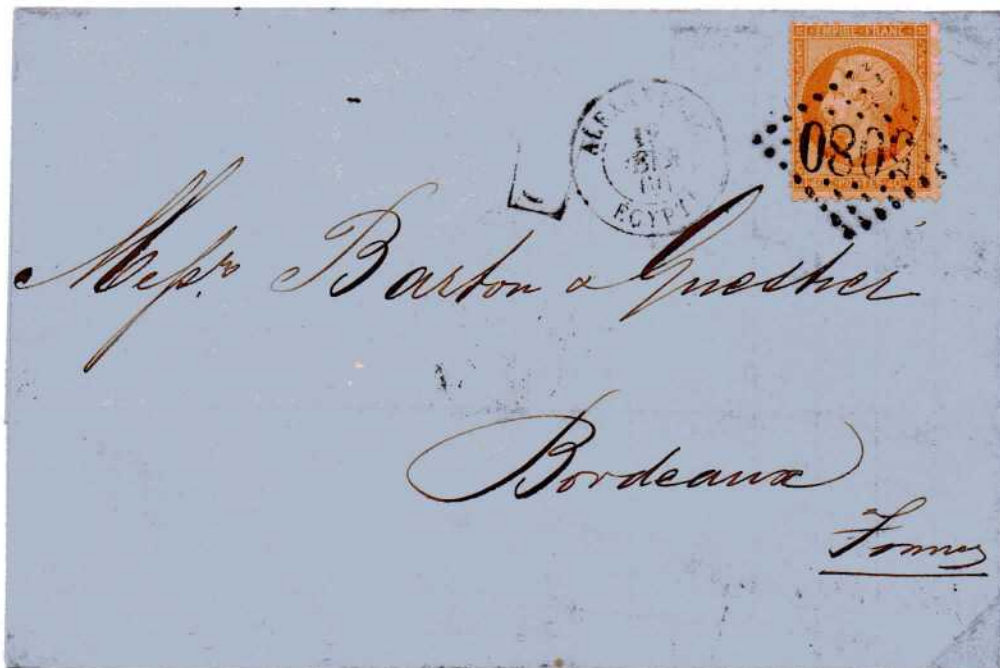 EMPIRE FRANC
5080
ALEXANDRIE
EGYPTE
Messrs. Barton & Guestier
Bordeaux